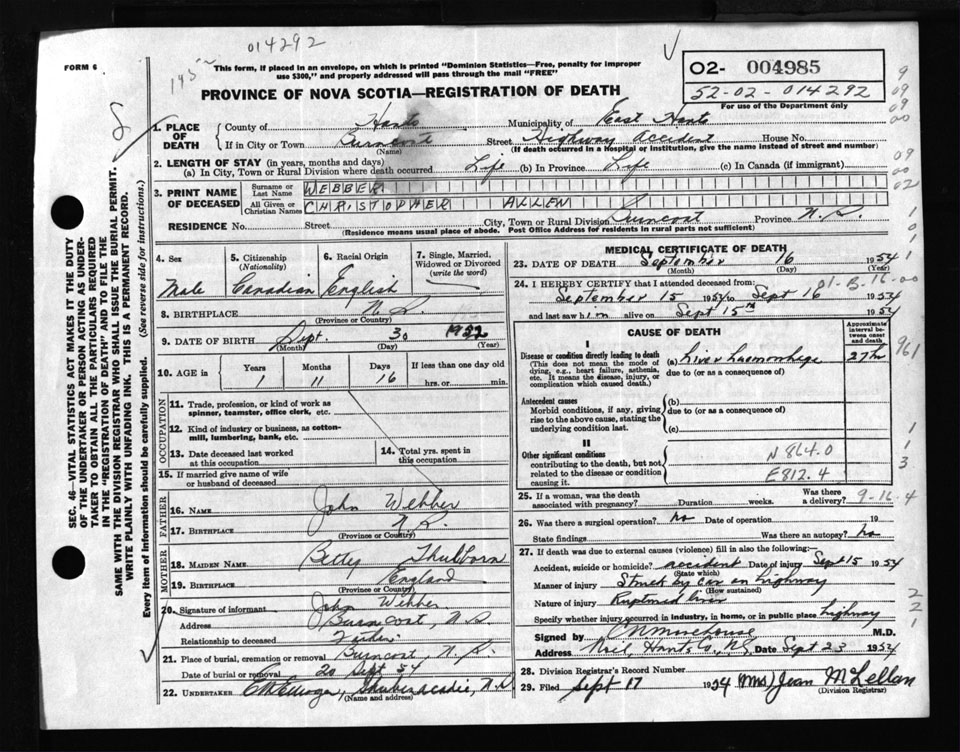 014292
FORM 6
145
This form, if placed in an envelope, on which is printed "Dominion Statistics—Free, penalty for improper
use $300," and properly addressed will pass through the mail "FREE"
O2- 004985
52-02-014292
For use of the Department only
PROVINCE OF NOVA SCOTIA—REGISTRATION OF DEATH
1. PLACE OF DEATH
County of Hants Municipality of East Hants
If in City or Town Burncoat Street Highway Accident House No.
(Name) (If death occurred in a Hospital or Institution, give the name instead of street and number)
2. LENGTH OF STAY (in years, months and days)
(a) In City, Town or Rural Division where death occurred Life (b) In Province Life (c) In Canada (if immigrant)
3. PRINT NAME OF DECEASED
Surname or Last Name WEBBER
All Given or Christian Names CHRISTOPHER ALLEN
RESIDENCE No. Street City, Town or Rural Division Burncoat Province N.S.
(Residence means usual place of abode. Post Office Address for residents in rural parts not sufficient)
4. Sex Male
5. Citizenship (Nationality) Canadian
6. Racial Origin English
7. Single, Married, Widowed or Divorced (write the word)
8. BIRTHPLACE N.S.
(Province or Country)
9. DATE OF BIRTH Sept. 30 1952
(Month) (Day) (Year)
10. AGE in Years 1 Months 11 Days 16 If less than one day old hrs. or min.
OCCUPATION
11. Trade, profession, or kind of work as spinner, teamster, office clerk, etc.
12. Kind of industry or business, as cotton-mill, lumbering, bank, etc.
13. Date deceased last worked at this occupation
14. Total yrs. spent in this occupation
15. If married give name of wife or husband of deceased
FATHER
16. NAME John Webber
17. BIRTHPLACE N.S.
(Province or Country)
MOTHER
18. MAIDEN NAME Betty Thubborn
19. BIRTHPLACE England
(Province or Country)
20. Signature of informant John Webber
Address Burncoat, N.S.
Relationship to deceased Father
21. Place of burial, cremation or removal Burncoat, N.S.
Date of burial or removal 20 Sept 54
22. UNDERTAKER Shubenacadie, N.S.
(Name and address)
MEDICAL CERTIFICATE OF DEATH
23. DATE OF DEATH September 16 1954
(Month) (Day) (Year)
24. I HEREBY CERTIFY that I attended deceased from:
September 15 1954 to Sept 16 1954
and last saw him alive on Sept 15th 1954
CAUSE OF DEATH
Approximate interval between onset and death
I
Disease or condition directly leading to death (a) liver haemorrhage 27 hr
(This does not mean the mode of dying, e.g., heart failure, asthenia, etc. It means the disease, injury, or complication which caused death.)
due to (or as a consequence of)
Antecedent causes
Morbid conditions, if any, giving rise to the above cause, stating the underlying condition last.
(b)
due to (or as a consequence of)
(c)
II
Other significant conditions
contributing to the death, but not related to the disease or condition causing it.
N864.0
E812.4
25. If a woman, was the death associated with pregnancy? Duration weeks. Was there a delivery?
9-16-4
26. Was there a surgical operation? no Date of operation 19
State findings Was there an autopsy? No
27. If death was due to external causes (violence) fill in also the following:
Accident, suicide or homicide? accident Date of injury Sept 15 1954
(State which)
Manner of injury Struck by car on highway
(How sustained)
Nature of injury Ruptured liver
Specify whether injury occurred in industry, in home, or in public place highway
Signed by M.D.
Address Noel, Hants Co, N.S. Date Sept 23 1954
28. Division Registrar's Record Number
29. Filed Sept 17 1954 (Mrs) Jean McLellan
(Division Registrar)
SEC. 46—VITAL STATISTICS ACT MAKES IT THE DUTY
OF THE UNDERTAKER OR PERSON ACTING AS UNDER-
TAKER TO OBTAIN ALL THE PARTICULARS REQUIRED
IN THE "REGISTRATION OF DEATH" AND TO FILE THE
SAME WITH THE DIVISION REGISTRAR WHO SHALL ISSUE THE BURIAL PERMIT.
WRITE PLAINLY WITH UNFADING INK. THIS IS A PERMANENT RECORD.
Every item of information should be carefully supplied. (See reverse side for instructions.)